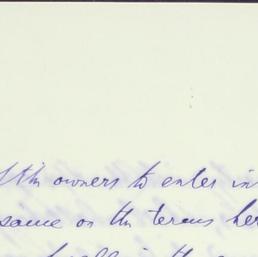 the owners to enter in
same on the terms her